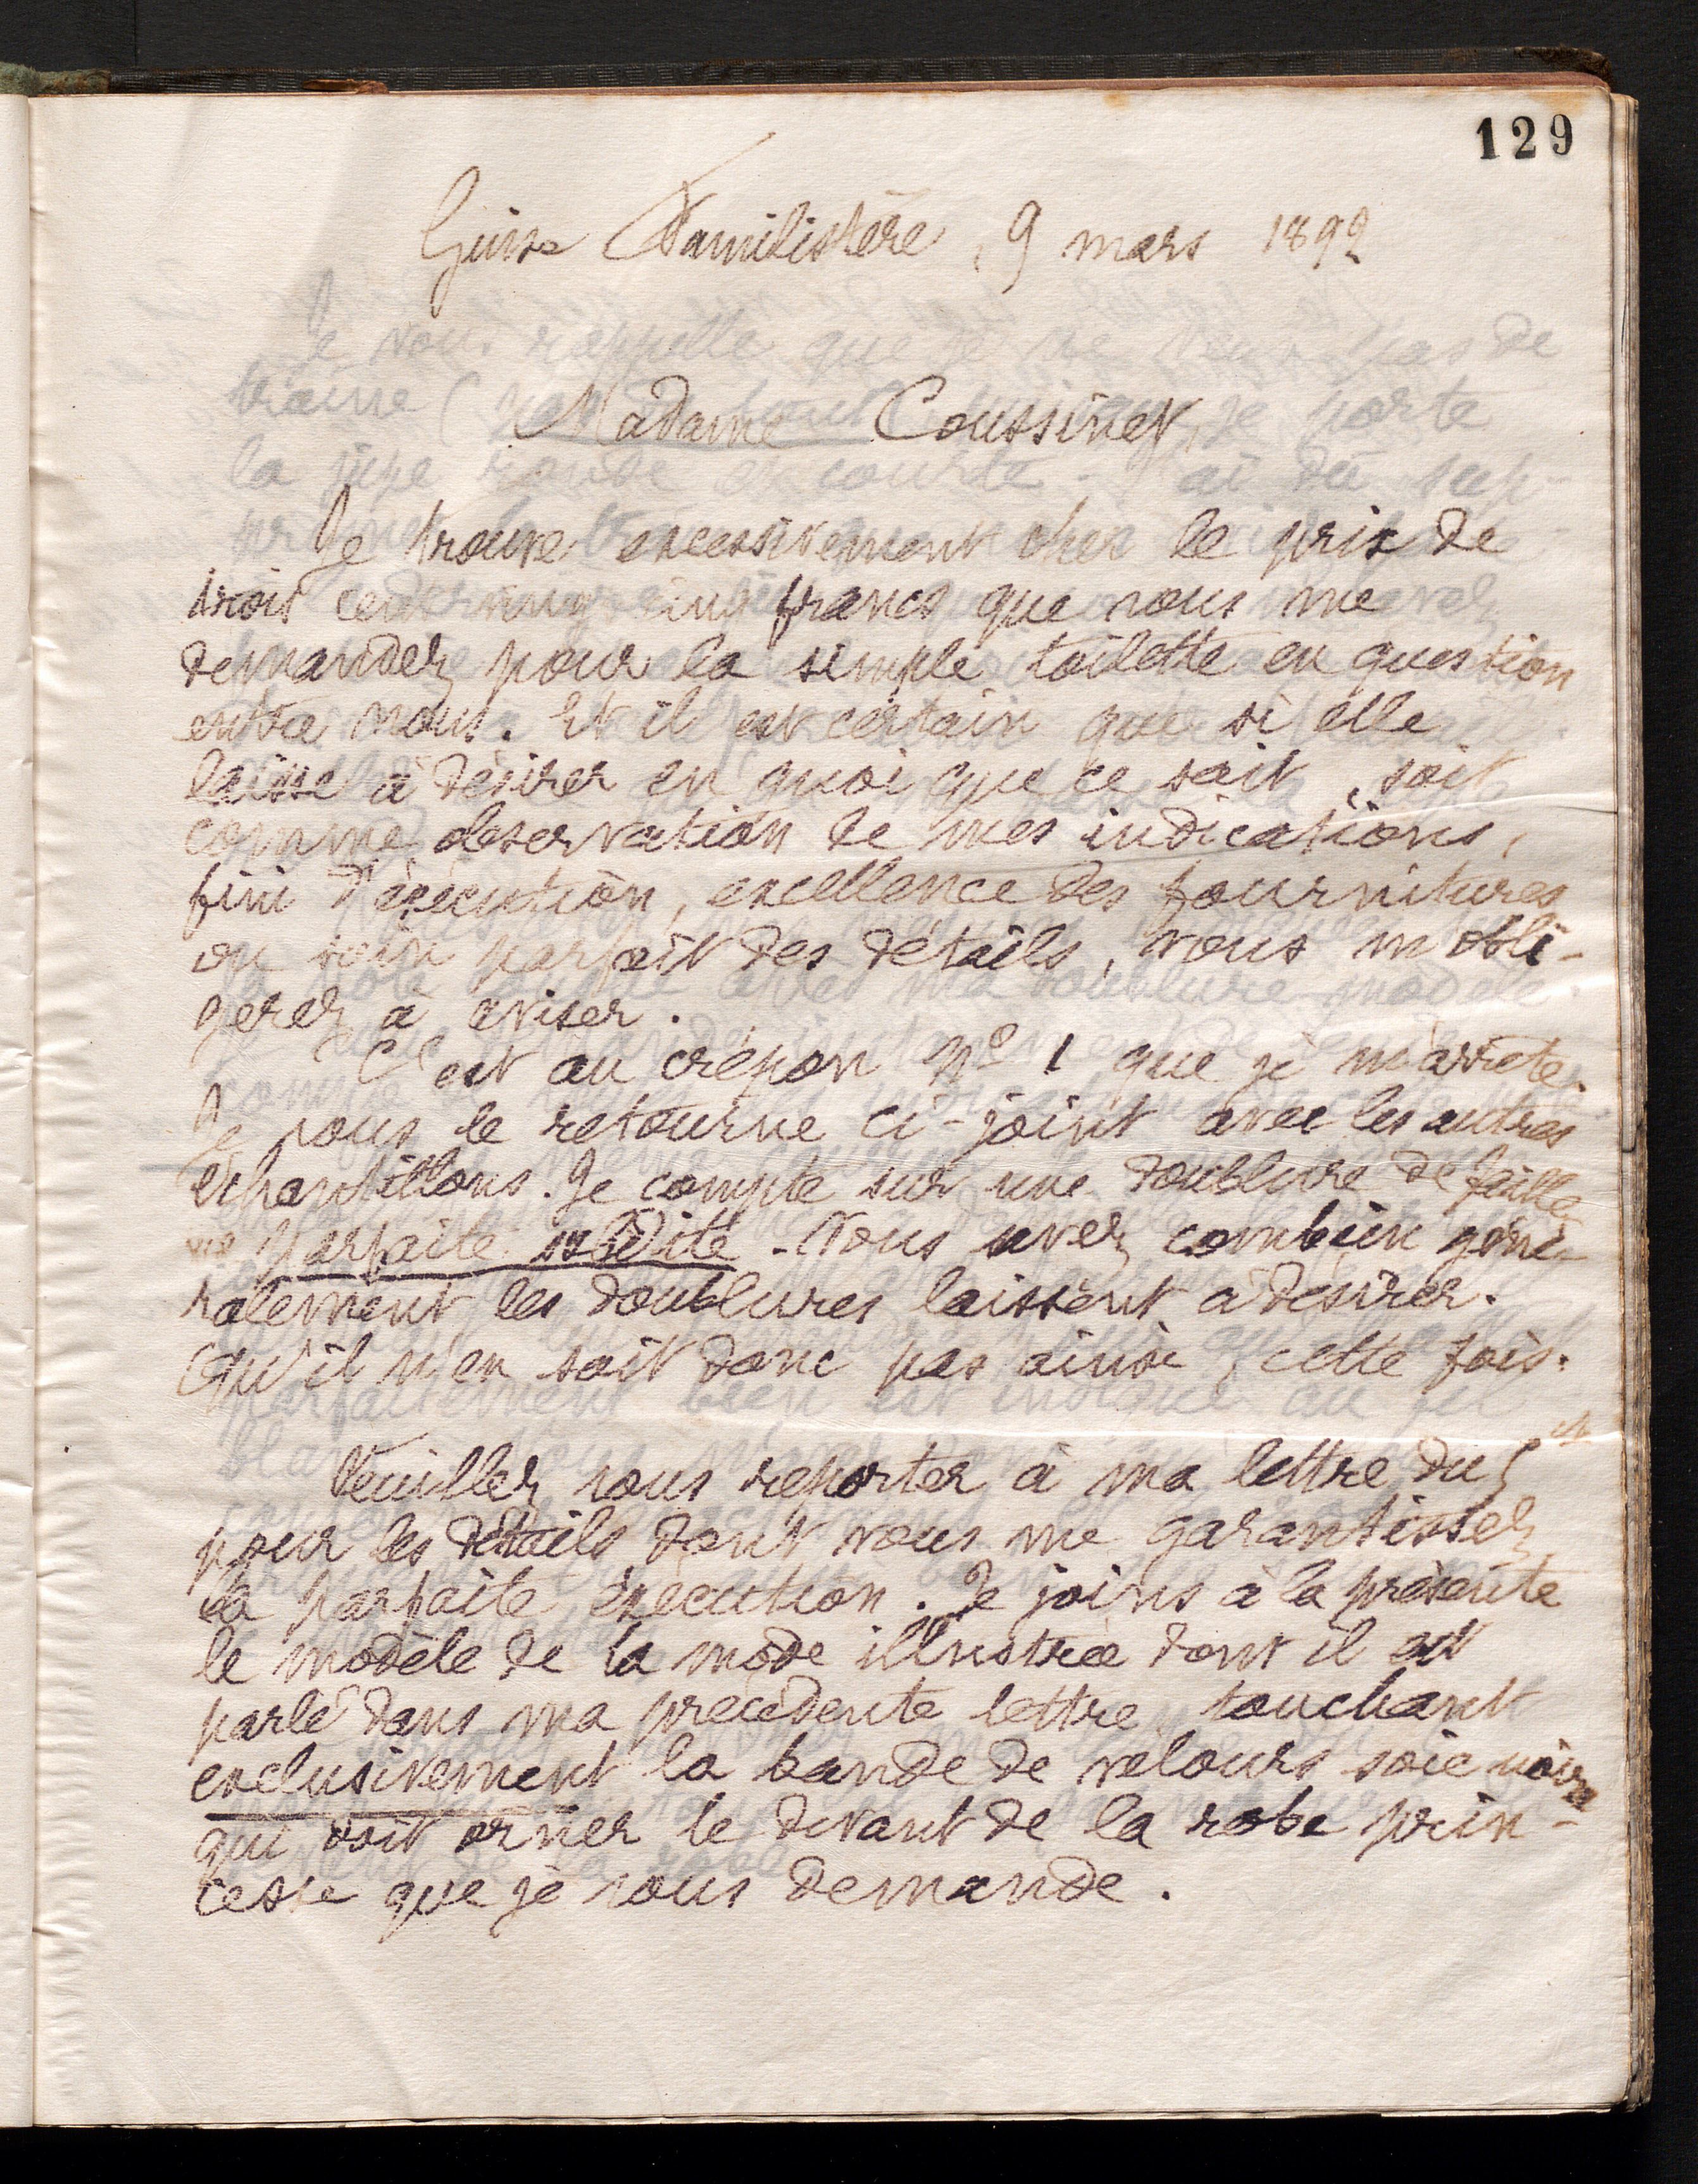 129
Guise Familistère, 9 mars 1892
Madame Coussinet,
Je trouve excessivement cher le prix de
trois cent vingt cinq francs que vous me
demandez pour la simple toilette en question
entre nous. Et il est certain que si elle
laisse à désirer en quoi que ce soit, soit
comme observation de mes indications,
fini d'exécution, excellence des fournitures
ou soin parfait des détails, vous m'obli-
gerez à aviser.
C'est au crépon No 1 que je m'arrête.
Je vous le retourne ci-joint avec les autres
échantillons. Je compte sur une doublure de faille
parfaite solidité. Vous savez combien géné-
ralement les doublures laissent à désirer.
Qu'il n'en soit donc pas ainsi, cette fois.
Veuillez vous reporter à ma lettre du 5 ct
pour les détails dont vous me garantissez
la parfaite exécution. Je joins à la présente
le modèle de la mode illustrée dont il est
parlé dans ma précédente lettre, touchant
exclusivement la bande de velours soie noire
qui doit orner le devant de la robe prin-
cesse que je vous demande.